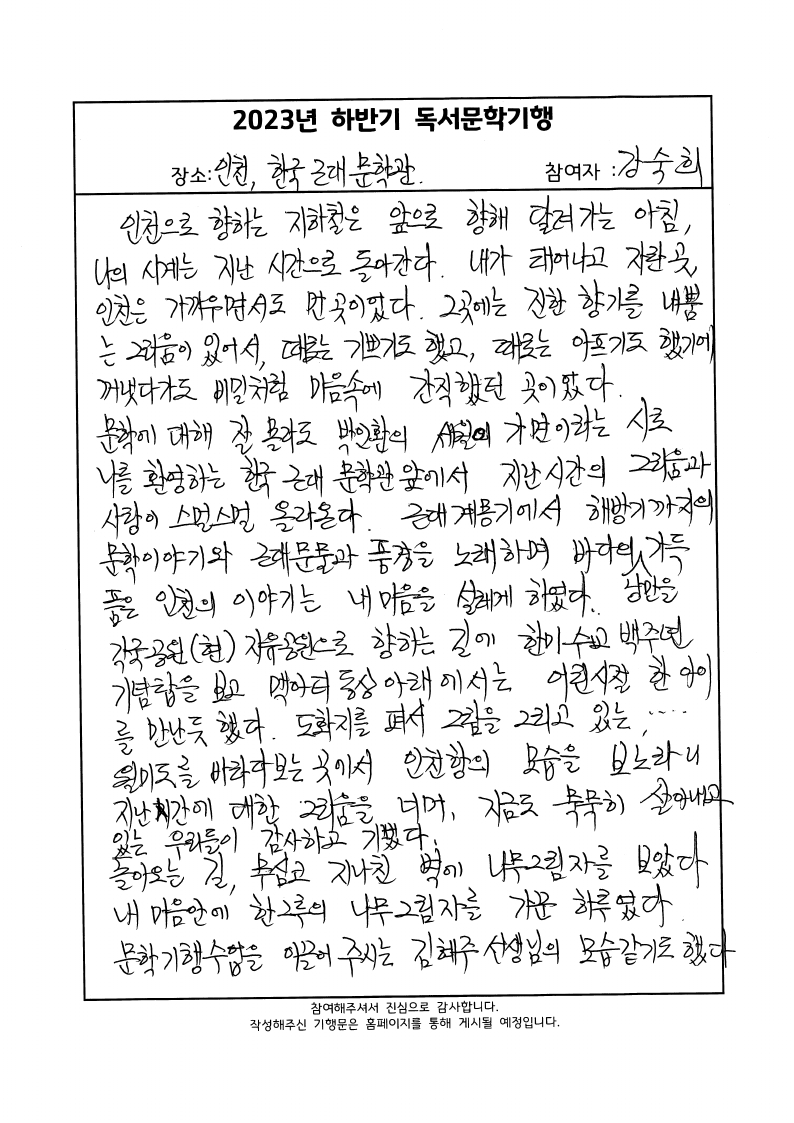 2023년 하반기 독서문학기행
장소:인천, 한국 근대 문학관. 참여자 :강숙희
인천으로 향하는 지하철은 앞으로 향해 달려가는 아침,
나의 시계는 지난 시간으로 돌아간다. 내가 태어나고 자란곳,
인천은 가까우면서도 먼곳이었다. 그곳에는 진한 향기를 내뿜
는 그리움이 있어서, 때로는 기쁘기도 했고, 때로는 아프기도 했기에
꺼냈다가도 비밀처럼 마음속에 간직했던 곳이였다.
문학에 대해 잘 몰라도 박인환의 세월의 가면이라는 시로
나를 환영하는 한국 근대 문학관 앞에서 지난시간의 그리움과
사랑이 스멀스멀 올라온다. 근대계몽기에서 해방기까지의
문학이야기와 근대문물과 풍경을 노래하며 바다의 가득
품은 인천의 이야기는 내 마음을 설레게 하였다. 낭만을
각국공원(현) 자유공원으로 향하는 길에 한미수교 백주년
기념탑을 보고 맥아더 동상아래에서는 어린시절 한 아이
를 만난듯 했다. 도화지를 펴서 그림을 그리고 있는,····
월미도를 바라다보는 곳에서 인천항의 모습을 보노라니
지난시간에 대한 그리움을 너머, 지금도 묵묵히 살아내고
있는 우리들이 감사하고 기뻤다.
돌아오는 길, 무심코 지나친 벽에 나무그림자를 보았다
내 마음안에 한그루의 나무그림자를 가꾼 하루였다.
문학기행수업을 이끌어 주시는 김해주선생님의 모습같기도 했다
참여해주셔서 진심으로 감사합니다.
작성해주신 기행문은 홈페이지를 통해 게시될 예정입니다.